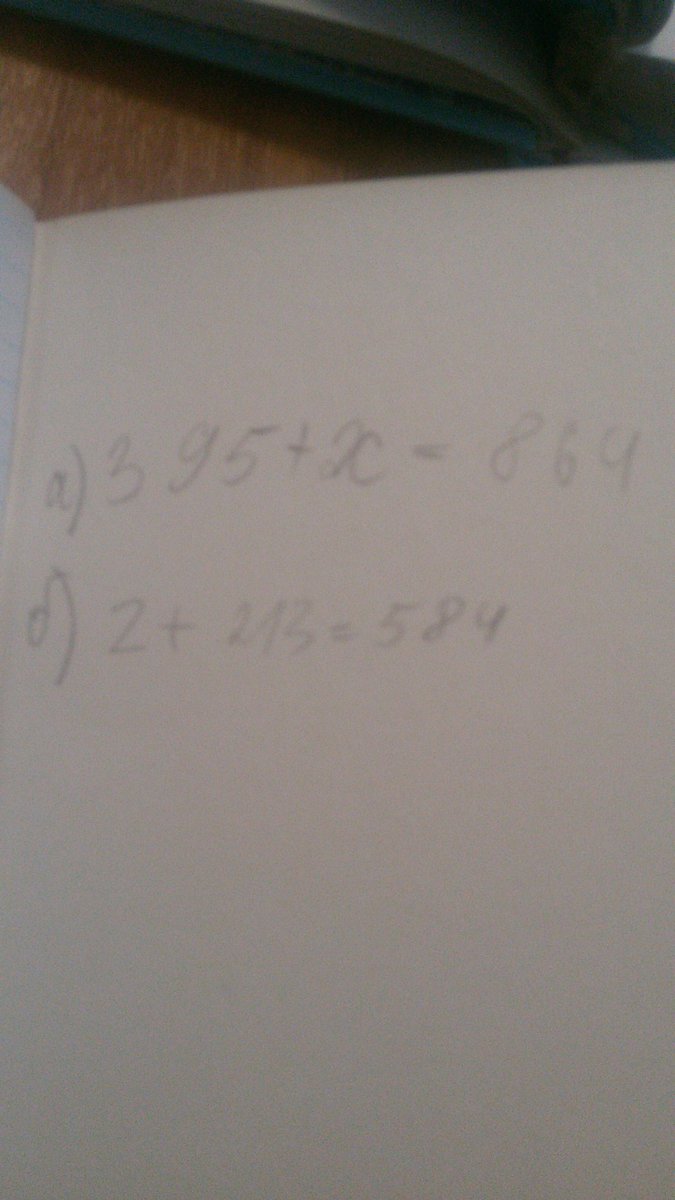 а) 395+x = 864
б) z + 213 = 584